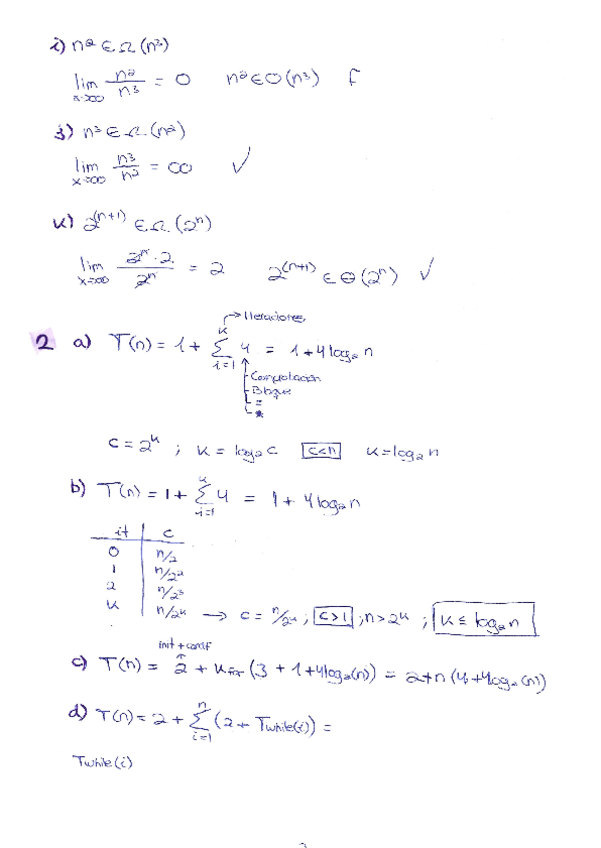 i) n² ∈ Ω (n³)
lim x→∞ n²/n³ = 0 n² ∈ O (n³) F
j) n³ ∈ Ω (n²)
lim x→∞ n³/n² = ∞ ✓
k) 2^(n+1) ∈ Ω (2ⁿ)
lim x→∞ 2ⁿ · 2 / 2ⁿ = 2 2^(n+1) ∈ Θ (2ⁿ) ✓
→ Iteraciones
2 a) T(n) = 1 + Σ_{i=1}^{k} 4 = 1 + 4 log₂ n
Comprobación
=
*
c = 2^k ; k = log₂ c c<n k = log₂ n
b) T(n) = 1 + Σ_{i=1}^{k} 4 = 1 + 4 log₂ n
it c
0 n/2
1 n/2²
2 n/2³
k n/2^k → c = n/2^k ; c>1 ; n > 2^k ; k ≤ log₂ n
init + cond
c) T(n) = 2 + k_for (3 + 1 + 4 log₂(n)) = 2 + n (4 + 4 log₂ (n))
d) T(n) = 2 + Σ_{i=1}^{n} (2 + Twhile(i)) =
Twhile(i)